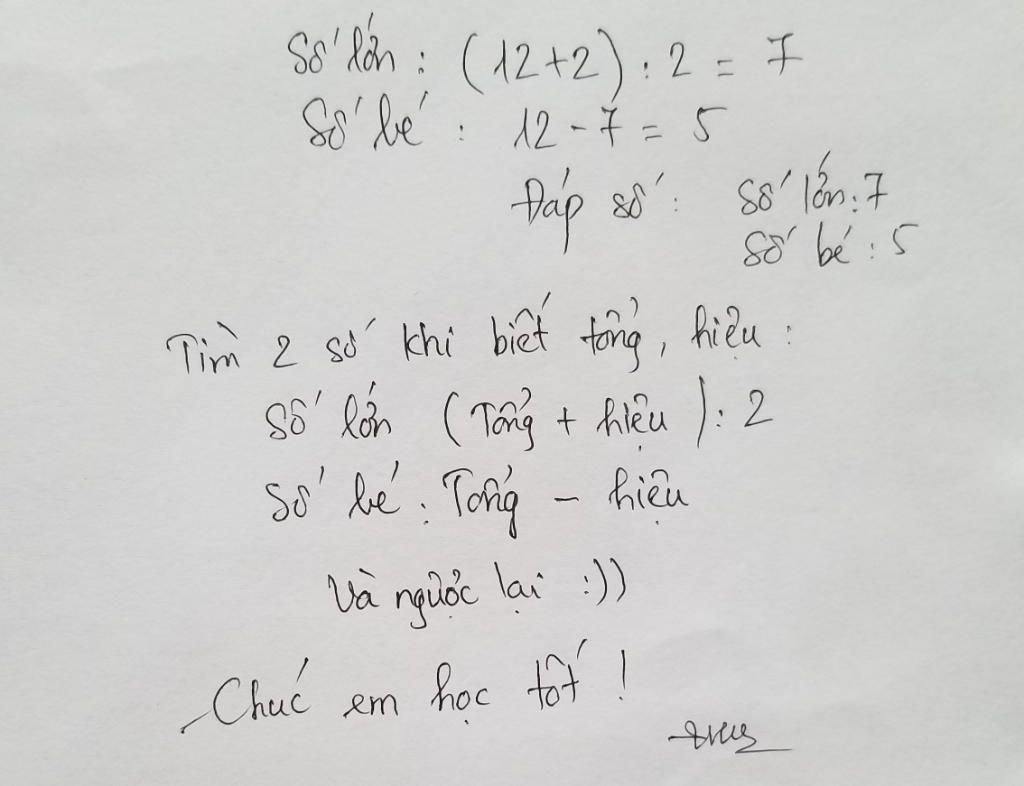 Số lớn : (12+2) : 2 = 7
Số bé : 12 - 7 = 5
Đáp số : Số lớn : 7
Số bé : 5
Tìm 2 số khi biết tổng, hiệu :
Số lớn (Tổng + hiệu) : 2
Số bé : Tổng - hiệu
Và ngược lại :))
Chúc em học tốt !